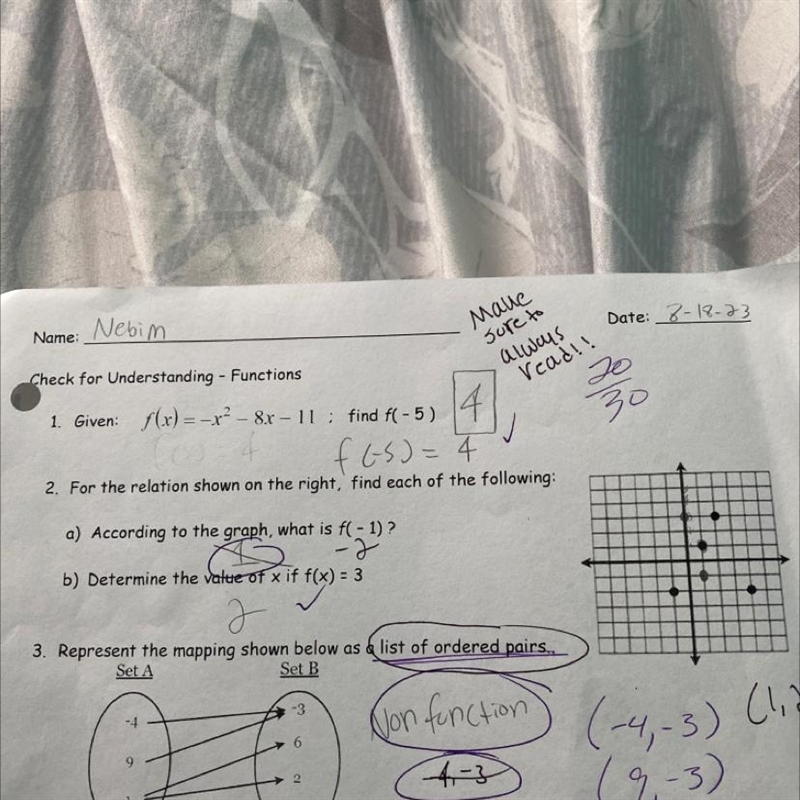 Name: Nebim
Date: 8-18-23
Make
sure to
always
read!!
20
30
Check for Understanding - Functions
1. Given: f(x) = -x² - 8x - 11 ; find f(-5)
4
f(-5) = 4
2. For the relation shown on the right, find each of the following:
a) According to the graph, what is f(-1)?
-2
b) Determine the value of x if f(x) = 3
2
3. Represent the mapping shown below as a list of ordered pairs.
Set A
Set B
-4
-3
9
6
2
Non function
4,-3
(-4,-3)
(9,-3)
(1,